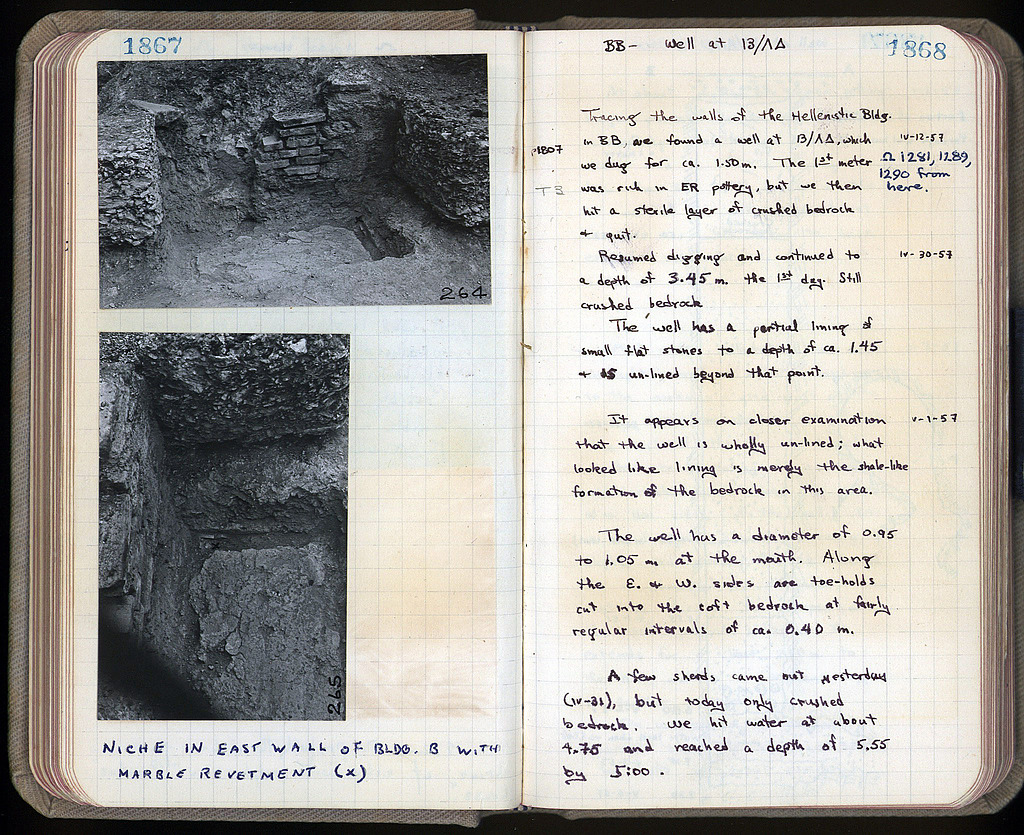 1867
264
265
NICHE IN EAST WALL OF BLDG. B WITH
MARBLE REVETMENT (X)
BB - Well at 13/ΛΔ
1868
Tracing the walls of the Hellenistic Bldg.
in BB, we found a well at 13/ΛΔ, which
iv-12-57
p1807
we dug for ca. 1.50 m. The 1st meter
Ω 1281, 1289,
1290 from
here.
T3
was rich in ER pottery, but we then
hit a sterile layer of crushed bedrock
+ quit.
Resumed digging and continued to
iv-30-57
a depth of 3.45 m. the 1st day. Still
crushed bedrock
The well has a partial lining of
small flat stones to a depth of ca. 1.45
+ is un-lined beyond that point.
It appears on closer examination
v-1-57
that the well is wholly un-lined; what
looked like lining is merely the shale-like
formation of the bedrock in this area.
The well has a diameter of 0.95
to 1.05 m. at the mouth. Along
the E. + W. sides are toe-holds
cut into the soft bedrock at fairly
regular intervals of ca. 0.40 m.
A few sherds came out yesterday
(iv-31), but today only crushed
bedrock. We hit water at about
4.75 and reached a depth of 5.55
by 5:00.